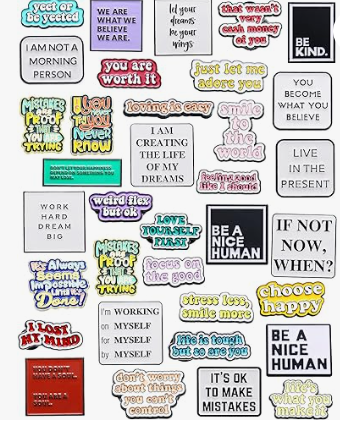 yeet or
be yeeted
WE ARE
WHAT WE
BELIEVE
WE ARE.
let your
dreams
be your
wings
that wasn't
very
cash money
of you
BE
KIND.
I AM NOT A
MORNING
PERSON
you are
worth it
just let me
adore you
YOU
BECOME
WHAT YOU
BELIEVE
MISTAKES
ARE
PROOF
THAT
YOU ARE
TRYING
IF YOU
NEVER
KNOW
loving is easy
smile
to the
world
I AM
CREATING
THE LIFE
OF MY
DREAMS
LIVE
IN THE
PRESENT
feeling good
like I should
WORK
HARD
DREAM
BIG
weird flex
but ok
LOVE
YOURSELF
FIRST
BE A
NICE
HUMAN
IF NOT
NOW,
WHEN?
MISTAKES
ARE
PROOF
THAT
YOU ARE
TRYING
focus on
the good
It's Always
Seems
Impossible
Until It's
Done!
choose
happy
stress less,
smile more
I'm WORKING
on MYSELF
for MYSELF
by MYSELF
I LOST
MY MIND
life is tough
but so are you
BE A
NICE
HUMAN
YOU DON'T
HAVE A SOUL.
YOU ARE A
SOUL.
don't worry
about things
you can't
control
IT'S OK
TO MAKE
MISTAKES
life's
what you
make it